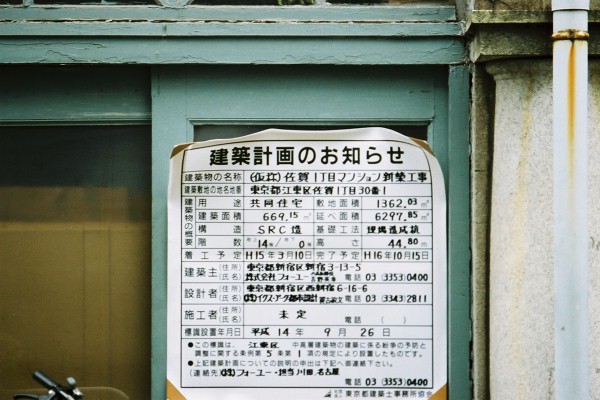 建築計画のお知らせ
建築物の名称 (仮称)佐賀1丁目マンション新築工事
建築敷地の地名地番 東京都江東区佐賀1丁目30番1
建築物の概要
用途 共同住宅 敷地面積 1362.03㎡
建築面積 669.15㎡ 延べ面積 6297.85㎡
構造 SRC造 基礎工法 現場造成杭
階数 地上14階/地下0階 高さ 44.80m
着工予定 H15年3月10日 完了予定 H16年10月15日
建築主 (住所)(氏名) 東京都新宿区新宿3-13-5
株式会社フォーユー 電話 03 (3353)0400
設計者 (住所)(氏名) 東京都新宿区西新宿6-16-6
(株)イクス・アーク都市設計 電話 03 (3343)2811
施工者 (住所)(氏名) 未定 電話 ( )
標識設置年月日 平成14年9月26日
●この標識は、江東区 中高層建築物の建築に係る紛争の予防と
調整に関する条例第5条第1項の規定により設置したものです。
●上記建築計画についての説明の申出は下記へ御連絡下さい。
(連絡先) (株)フォーユー・担当 川田、名古屋
電話 03 (3353)0400
東京都建築士事務所協会